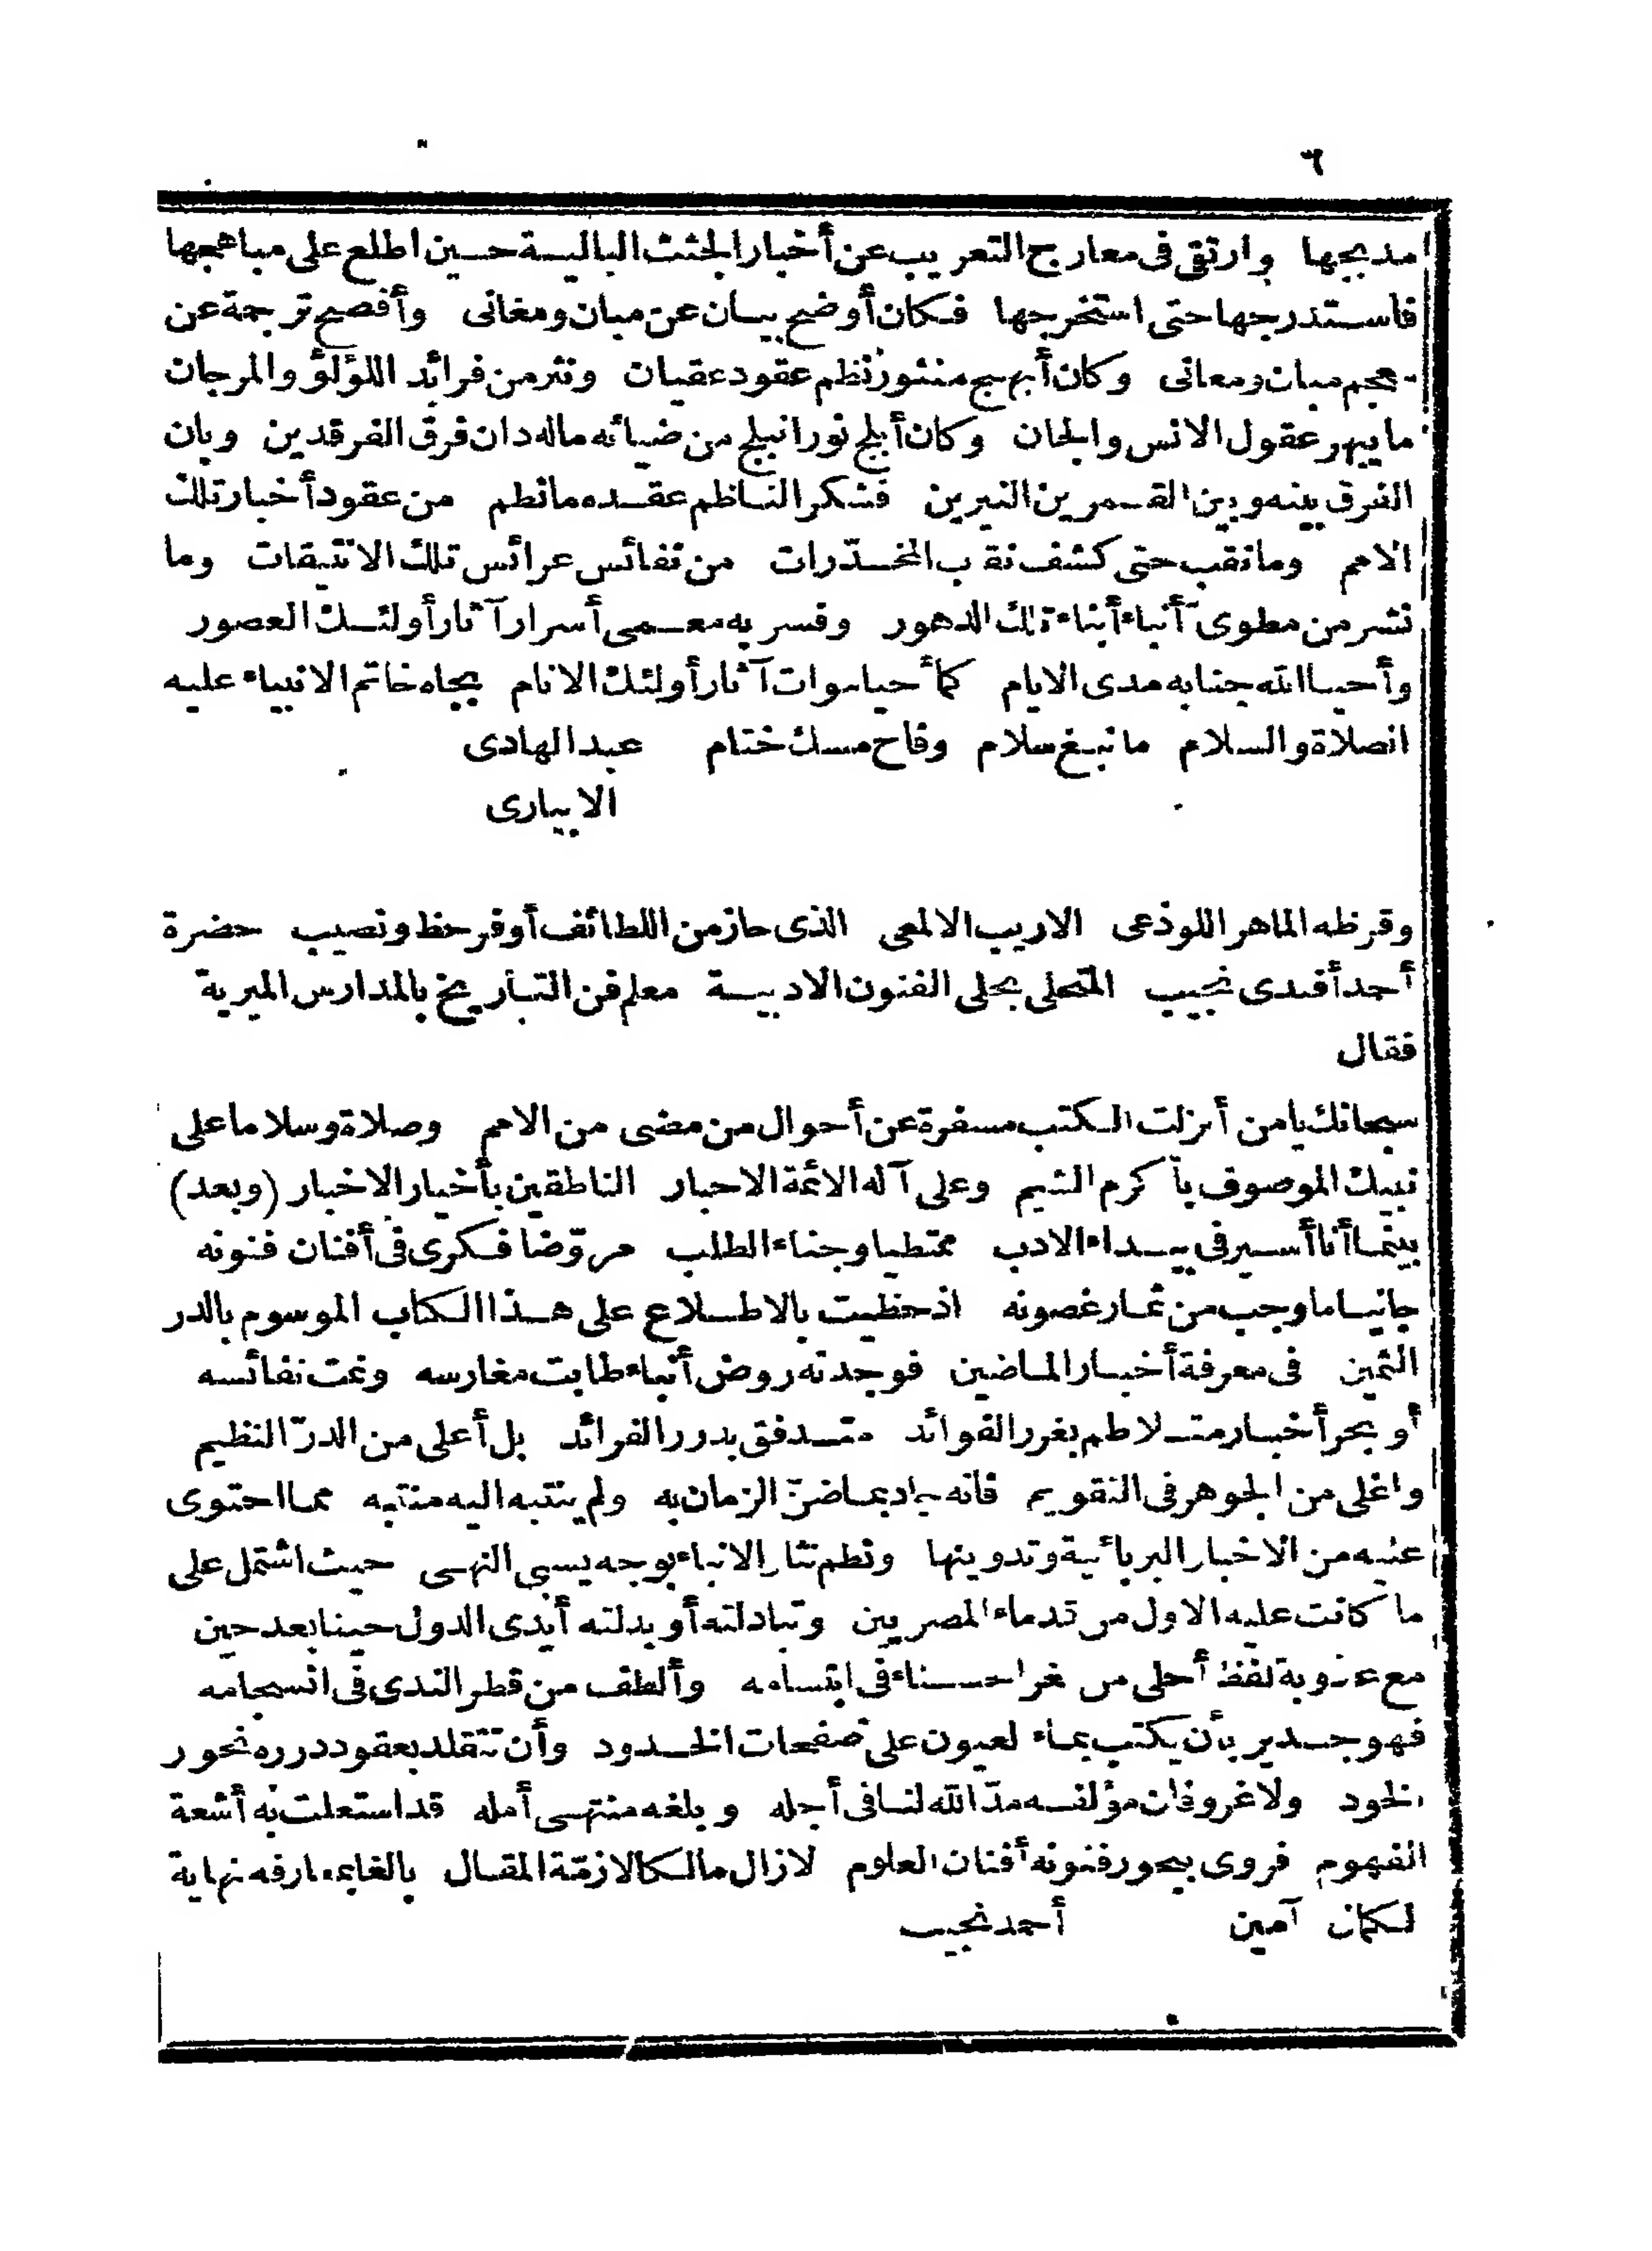 ٦
مدبجها وارتقى فى معارج التعريب عن أخبار الجثث البالية حين اطلع على مباهجها
فاستدرجها حتى استخرجها فكان أوضح بيان عن مبان ومغانى وأفصح ترجمة عن
معجم مبان ومعانى وكان أبهج منثور نظم عقود عقيان ونثر من فرائد اللؤلؤ والمرجان
ما يبهر عقول الانس والجان وكان أبلج نور انبلج من ضيائه ماله دان فرق الفرقدين وبان
الفرق بينه وبين القمرين النيرين فشكر الناظم عقده ما نظم من عقود أخبار تلك
الامم وما نقب حتى كشف نقب المخدّرات من نفائس عرائس تلك الانتيقات وما
نشر من مطوى أنباء أبناء تلك الدهور وفسر به معمى أسرار آثار أولئك العصور
وأحيا الله جنابه مدى الايام كما أحيا موات آثار أولئك الانام بجاه خاتم الانبياء عليه
الصلاة والسلام ما نبغ سلام وفاح مسك ختام عبد الهادى
الابيارى
وقرظه الماهر اللوذعى الاريب الالمعى الذى حاز من اللطائف أوفر حظ ونصيب حضرة
أحمد أفندى نجيب المتحلى بحلى الفنون الادبية معلم فن التاريخ بالمدارس الميرية
فقال
سبحانك يا من أنزلت الكتب مسفرة عن أحوال من مضى من الامم وصلاة وسلاما على
نبيك الموصوف بأكرم الشيم وعلى آله الائمة الاحبار الناطقين بأخيار الاخبار (وبعد)
بينما أنا أسير فى بيداء الادب ممتطيا وجناء الطلب مروّضا فكرى فى أفنان فنونه
جانيا ما وجب من ثمار غصونه اذ حظيت بالاطلاع على هذا الكتاب الموسوم بالدر
الثمين فى معرفة أخبار الماضين فوجدته روض أنباء طابت مغارسه ونمت نفائسه
أو بحر أخبار متلاطم بغرر الفوائد متدفق بدرر الفرائد بل أعلى من الدرّ النظيم
واغلى من الجوهر فى التقويم فانه جاد بما ضنّ الزمان به ولم ينتبه اليه منتبه مما احتوى
عليه من الاخبار البربائية وتدوينها ونظم نثار الانباء بوجه يسبى النهى حيث اشتمل على
ما كانت عليه الاول من قدماء المصريين وتبادلته أو بدلته أيدى الدول حينا بعد حين
مع عذوبة لفظ أحلى من ثغر الحسناء فى ابتسامه وألطف من قطر الندى فى انسجامه
فهو جدير بأن يكتب بماء العيون على صفحات الخدود وأن تتقلد بعقود درره نحور
الخود ولا غرو فان مؤلفه مدّ الله لنا فى أجله وبلغه منتهى أمله قد استعلت به أشعة
الفهوم فروى ببحور فنونه أفنان العلوم لا زال مالكا لازمّة المقال بالغا بمعارفه نهاية
الكمال آمين أحمد نجيب